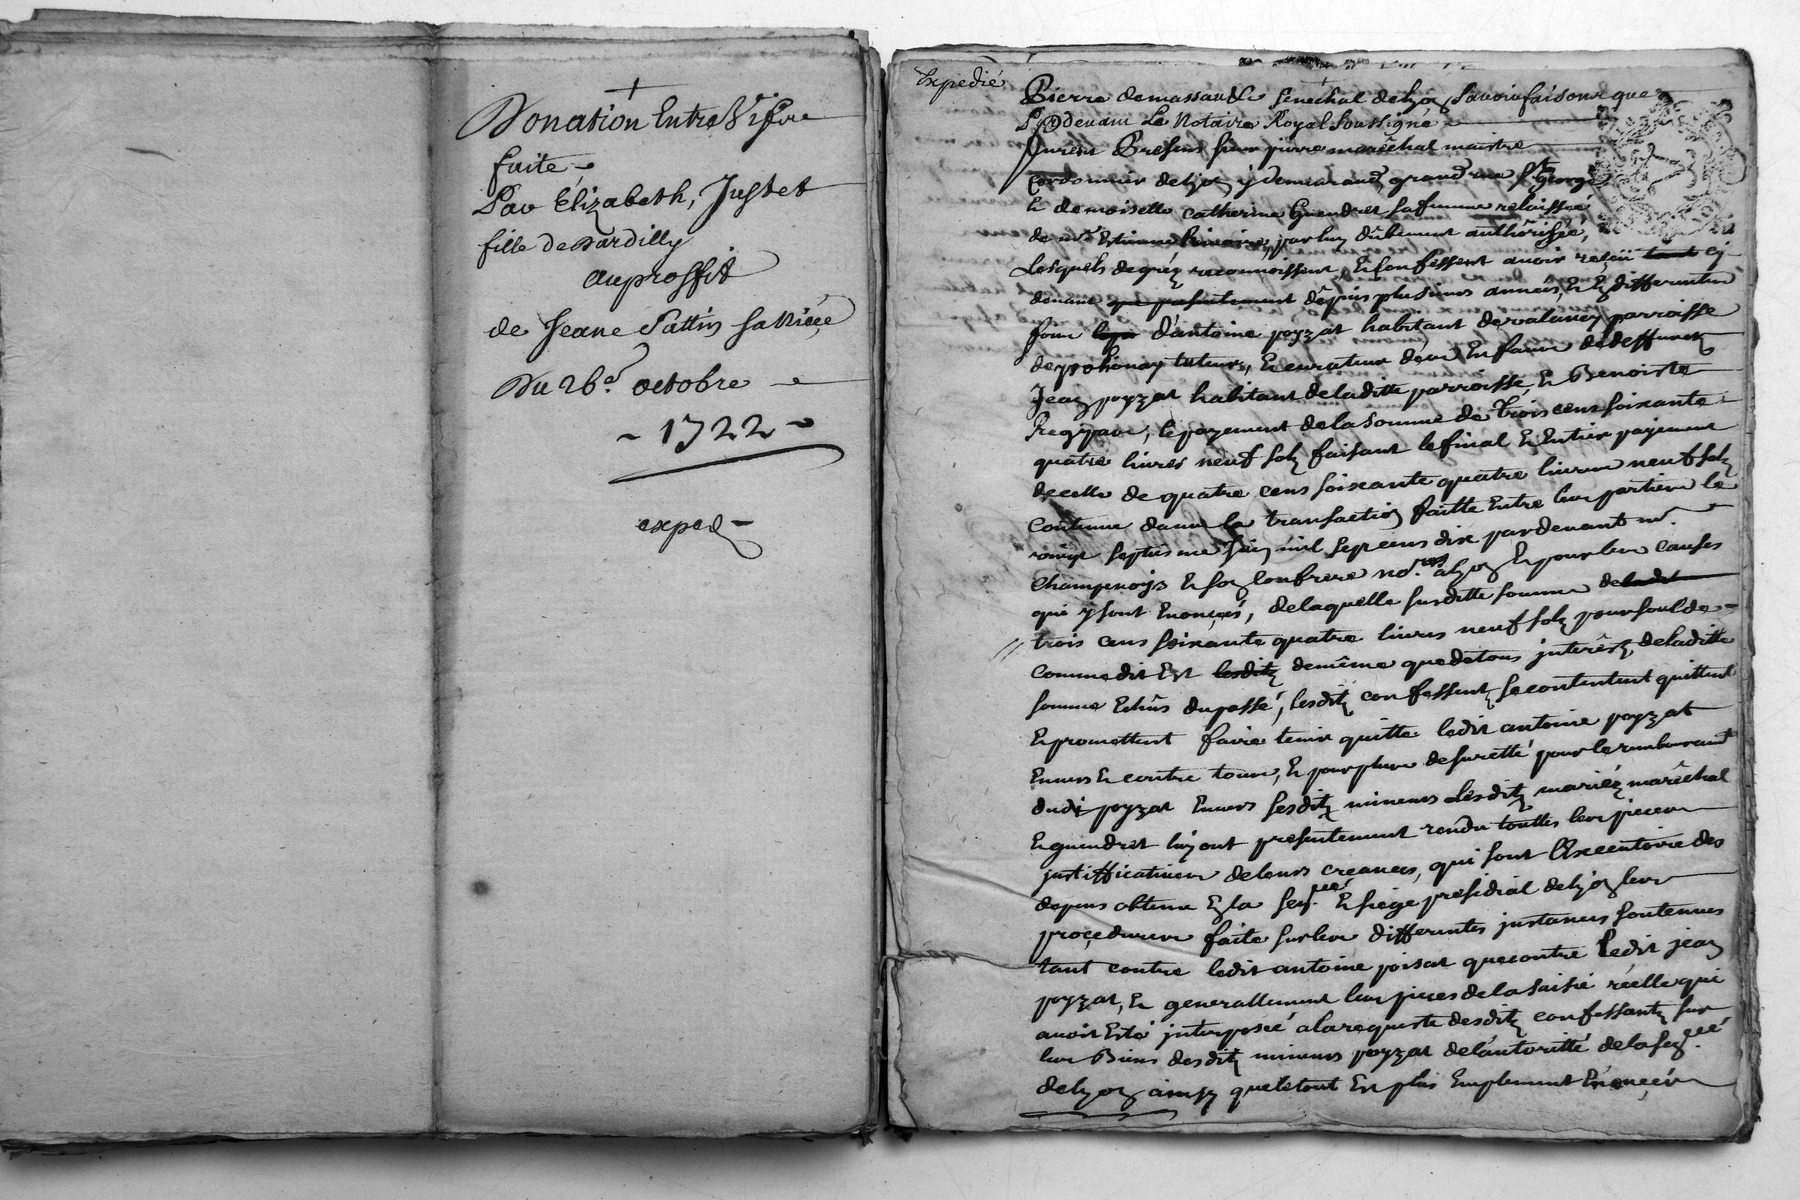 +
Donation Entre Vifve
faite
Par Elizabeth, Justet
fille de Dardilly
au proffit
de Jeane Pattin sa Niéce
Du 26e. octobre
- 1722 -
exped
Expedié
Pierre demassau Senechal de Lyon Savoir faisons que
Pardevant Le Notaire Royal Soussigné
furent Presens sieur pierre marêchal maistre
cordonnier de Lyon y demeurand grand rue St. George
Et demoiselle Catherine Guendret sa femme relaissée
de mre Estienne par luy dûbement authôrisée,
Lesquels de gréz reconnoissent, Et confessent avoir reçeu tout cy
devant que presentement dépuis plusieurs années, Et En differentes
fois d'antoine poyzat habitant de valancy parroisse
de pollionay tuteur, Et curateur de un Enfans dedeffunct
Jean poyzat habitant de la ditte parroisse Et Benoiste
le payement de la somme de trois cens soixante
quatre livres neuf solz faisant le final Et Entier payement
de celle de quatre cens soixante quatre livres neuf solz
contenue dans la transaction faitte Entre les parties le
vingt septiesme juin mil sept cens dix pardevant me.
Champenoys Et son Confrere nores. à Lyon Et pour les causes
qui y sont Enonçeés, de laquelle susditte somme de ladit
trois cens soixante quatre livres neuf solz pour soulde
comme dit Est lesditz demême que de tous jntérêtz de laditte
somme Echûs du passé, lesditz confessantz se contentent quittent
Et promettent faire tenir quitte ledit antoine poyzat
Envers Et contre tous, Et pour plus de suretté pour le remboursant
dudit poyzat Envers sesditz mineurs Lesditz mariéz marêchal
Et guendret luy ont presentement rendu touttes les pieces
justifficatives de leurs creances, qui sont L'Executoire des
depens obtenu En la senéé. Et siege presidial de Lyon les
proçedures faite sur les differentes jnstances soutenues
tant contre ledit antoine poisat que contre Ledit jean
poyzat, Et generallement les pieces de la saisie réelle qui
avoit Esté jnterposeé a la requiste desditz confessantz sur
les Biens desditz mineurs poyzat de l'autoritté de la senéé.
de Lyon ainsy que le tout Est plus Emplement Enonçéé